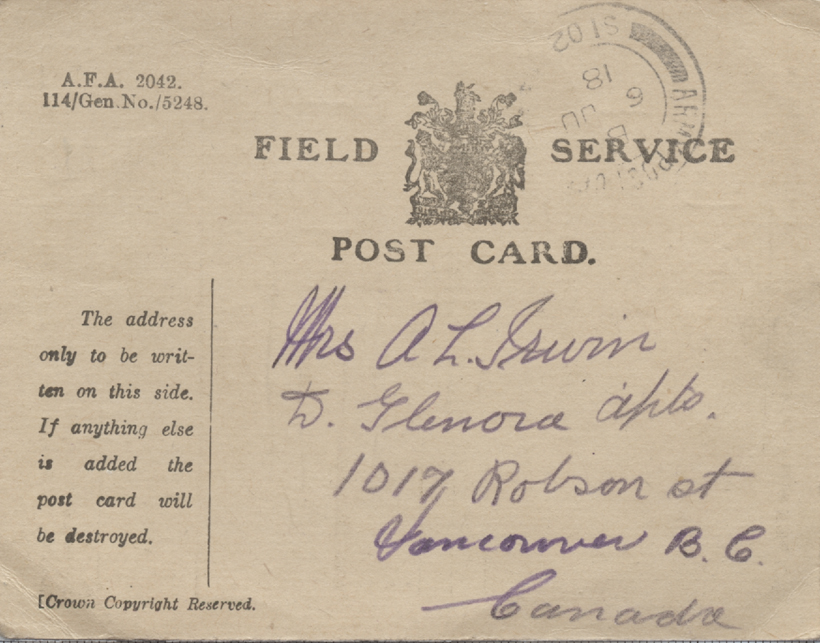 A.F.A. 2042.
114/Gen.No./5248.
FIELD SERVICE
POST CARD.
ARMY POST
S102
B
6 JU
18
The address
only to be writ-
ten on this side.
If anything else
is added the
post card will
be destroyed.
[Crown Copyright Reserved.
Mrs A. L. Irwin
D. Glenora apts.
1017 Robson st
Vancouver B. C.
Canada